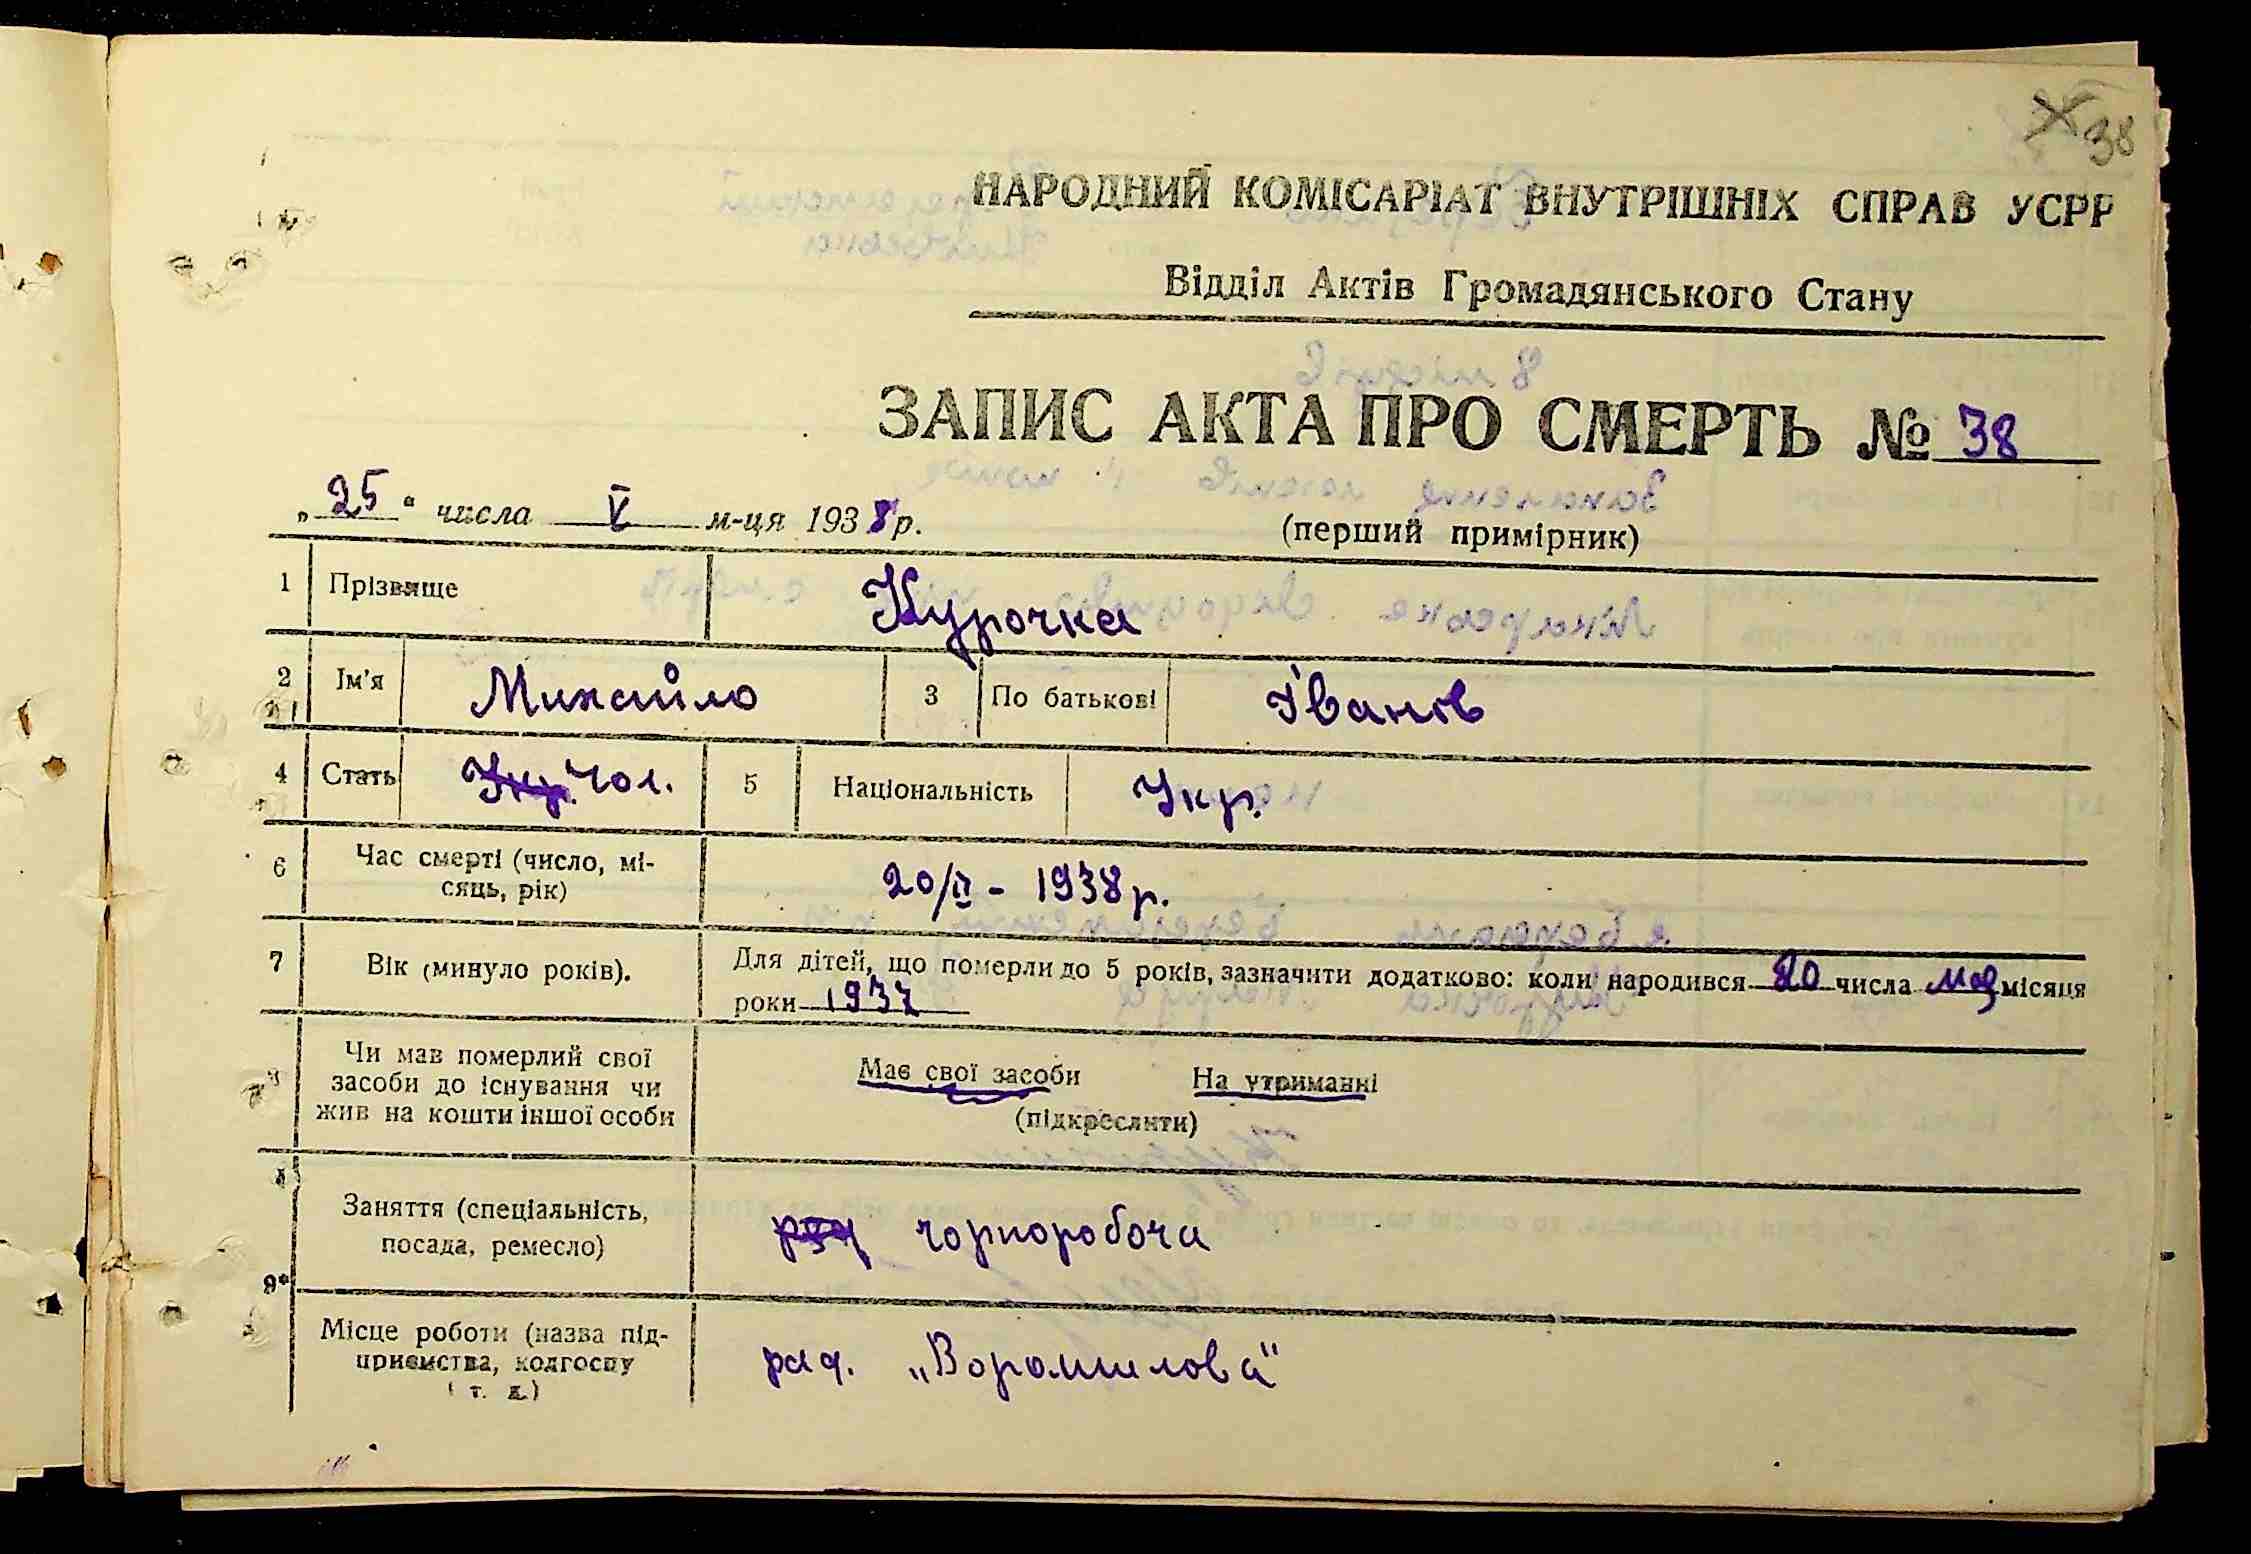 38
НАРОДНИЙ КОМІСАРІАТ ВНУТРІШНІХ СПРАВ УСРР
Відділ Актів Громадянського Стану
ЗАПИС АКТА ПРО СМЕРТЬ № 38
„25“ числа V м-ця 1938 р.
(перший примірник)
1 Прізвище Курочка
2 Ім'я Михайло 3 По батькові Іванов
4 Стать Укр. Чол. 5 Національність Укр.
6 Час смерті (число, мі-
сяць, рік) 20/V - 1938 р.
7 Вік (минуло років). Для дітей, що померли до 5 років, зазначити додатково: коли народився 20 числа мая місяця
роки 1937
Чи мав померлий свої
засоби до існування чи
жив на кошти іншої особи
Має свої засоби На утриманні
(підкреслити)
Заняття (спеціальність,
посада, ремесло) чорноробоча
9*
Місце роботи (назва під-
приємства, колгоспу
і т. д.)
рад. „Ворошилова“